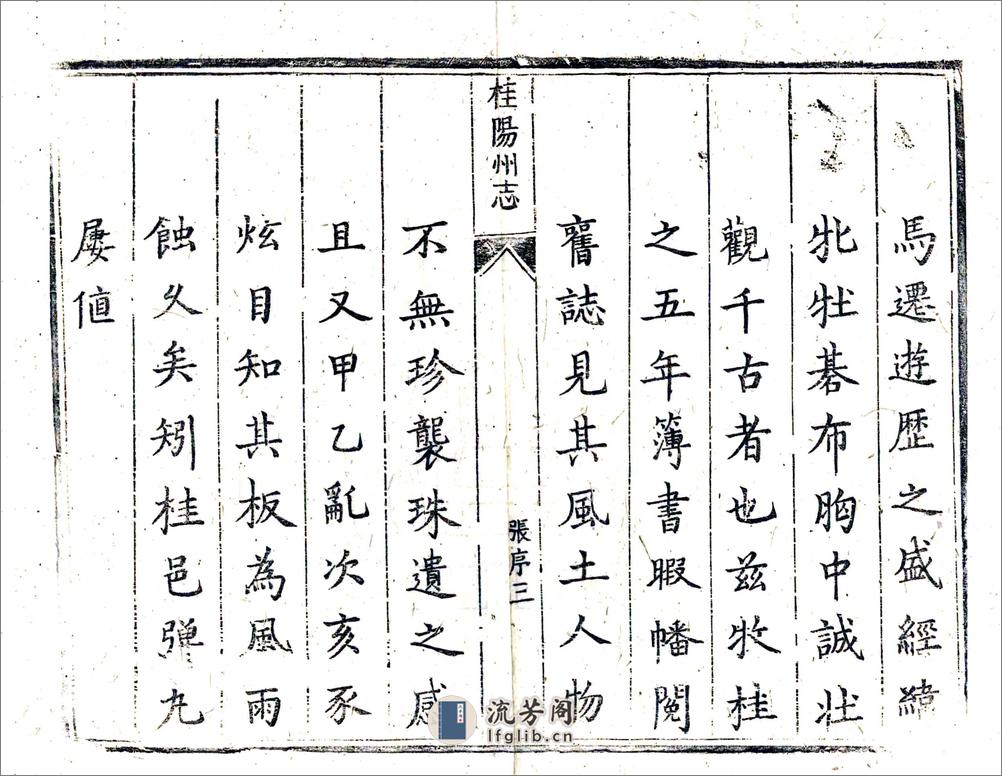 馬遷遊歴之盛經緯
牝牡碁布胸中誠壯
觀千古者也茲牧桂
之五年簿書暇幡閱
舊誌見其風土人物
桂陽州志
張序三
不無珍襲珠遺之感
且又甲乙亂次亥豕
炫目知其板為風雨
蝕久矣矧桂邑彈丸
屢値
流芳阁
lfglib.cn